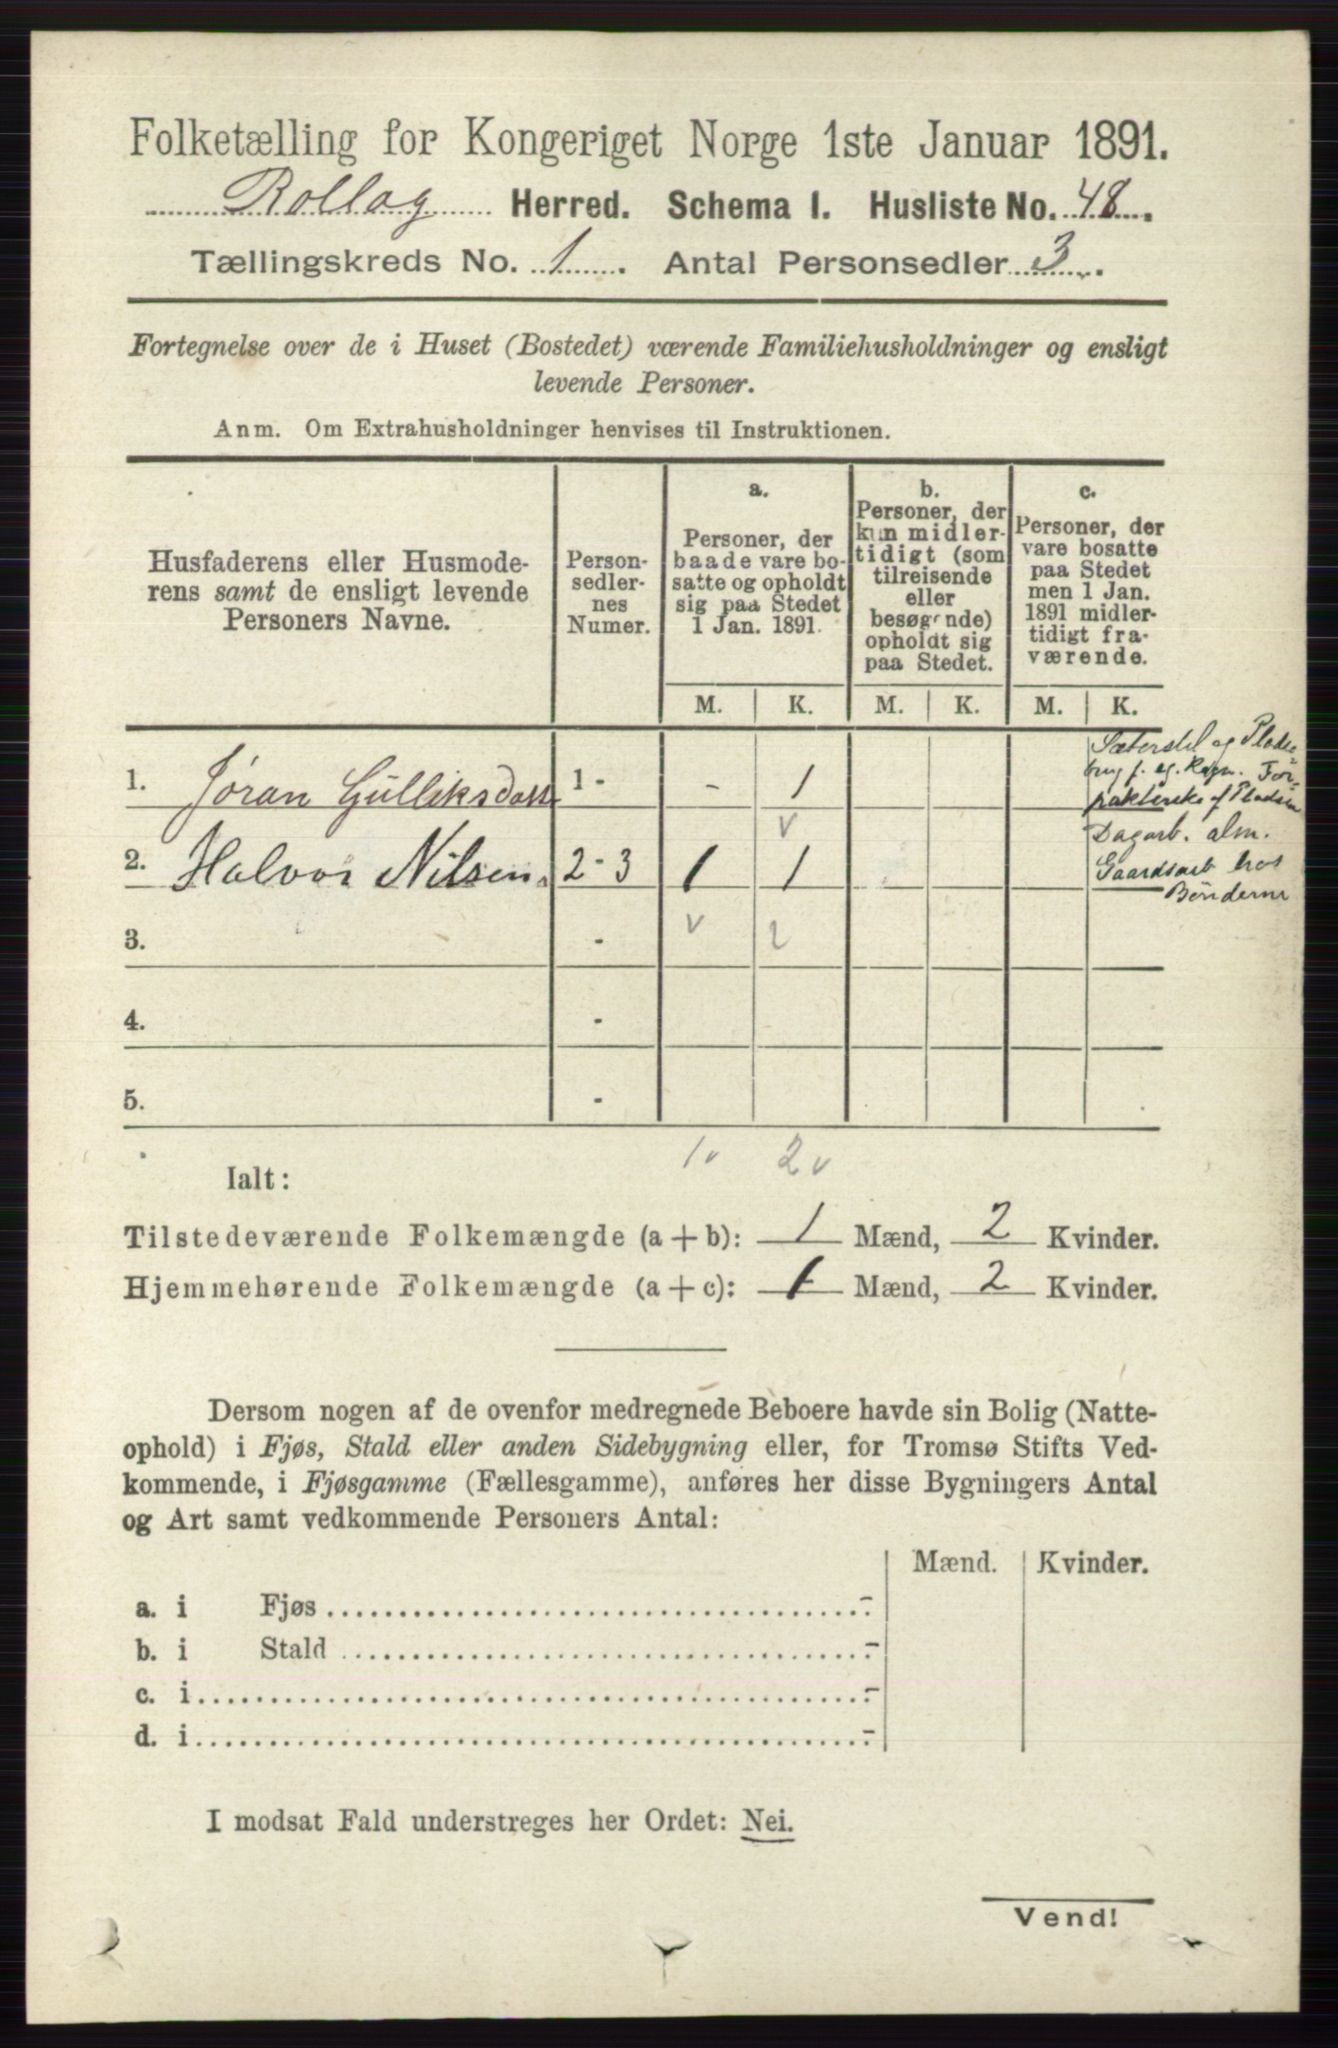 Folketælling for Kongeriget Norge 1ste Januar 1891.
Rollag Herred. Schema I. Husliste No. 48.
Tællingskreds No. 1. Antal Personsedler 3.
Fortegnelse over de i Huset (Bostedet) værende Familiehusholdninger og ensligt
levende Personer.
Anm. Om Extrahusholdninger henvises til Instruktionen.
Husfaderens eller Husmode-
rens samt de ensligt levende
Personers Navne.
Person-
sedler-
nes
Numer.
a.
Personer, der
baade vare bo-
satte og opholdt
sig paa Stedet
1 Jan. 1891.
b.
Personer, der
kun midler-
tidigt (som
tilreisende
eller
besøgende)
opholdt sig
paa Stedet.
c.
Personer, der
vare bosatte
paa Stedet
men 1 Jan.
1891 midler-
tidigt fra-
værende.
M. K. M. K. M. K.
1. Jøran Gulliksdatt 1 - - 1
og Plads
brug f. eg. Regn. For-
pakterske af Pladsen
v
2. Halvor Nilsen. 2 - 3 1 1
Dagarb. alm.
Gaardsarb hos
Bønderne
v 2
3. -
4. -
5. -
1 v 2 v
Ialt:
Tilstedeværende Folkemængde (a + b): 1 Mænd, 2 Kvinder.
Hjemmehørende Folkemængde (a + c): 1 Mænd, 2 Kvinder.
Dersom nogen af de ovenfor medregnede Beboere havde sin Bolig (Natte-
ophold) i Fjøs, Stald eller anden Sidebygning eller, for Tromsø Stifts Ved-
kommende, i Fjøsgamme (Fællesgamme), anføres her disse Bygningers Antal
og Art samt vedkommende Personers Antal:
Mænd. Kvinder.
a. i Fjøs -
b. i Stald -
c. i -
d. i -
I modsat Fald understreges her Ordet: Nei.
Vend!